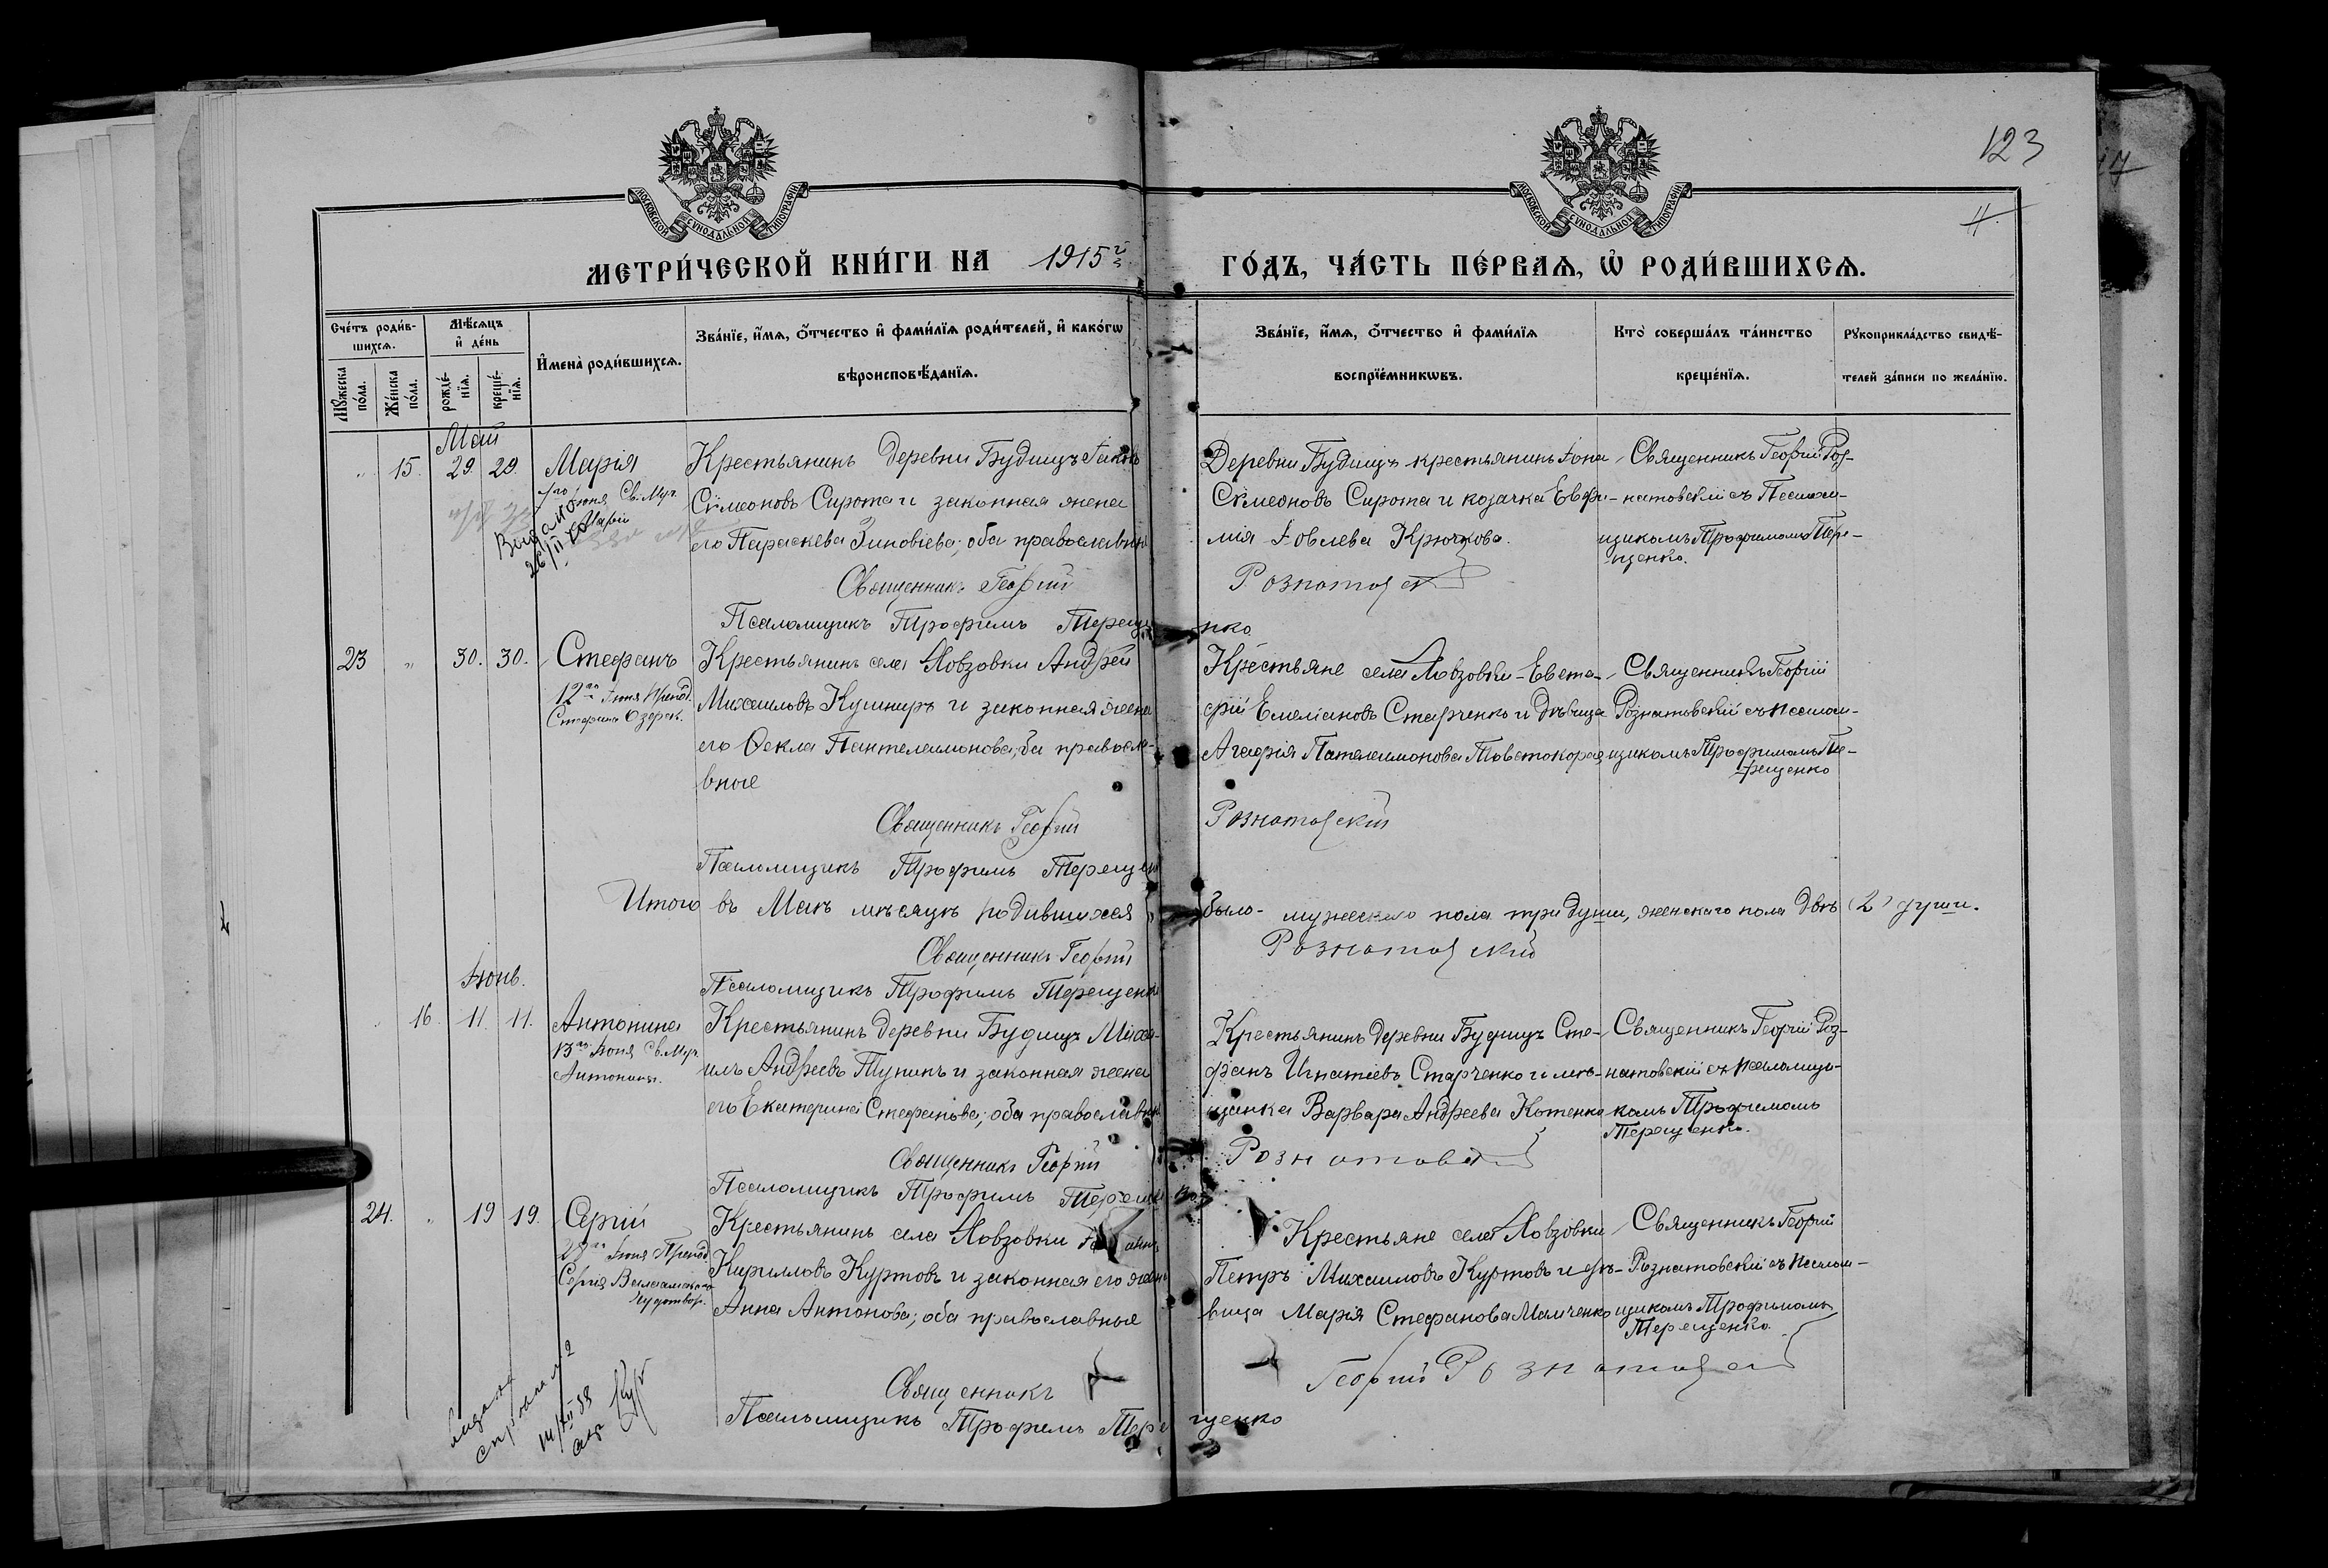 123
17
11.
МОСКОВСКОЙ СУНОДАЛЬНОЙ ТИПОГРАФІИ
МОСКОВСКОЙ СУНОДАЛЬНОЙ ТИПОГРАФІИ
МЕТРИ́ЧЕСКОЙ КНИ́ГИ НА 1915й ГО́ДЪ, ЧА́СТЬ ПЕ́РВАѦ, Ѡ҆ РОДИ́ВШИХСѦ.
Сче́тъ роди́в-
шихсѧ.
Мꙋ́жеска по́ла.
Же́нска по́ла.
Мѣ́сѧцъ
и҆ де́нь
рожде́-
нїѧ.
креще́-
нїѧ.
И҆мена̀ роди́вшихсѧ.
Зва́нїе, и҆́мѧ, ѻ҆́тчество и҆ фами́лїѧ роди́телей, и҆ како́гѡ
вѣроисповѣ́данїѧ.
Зва́нїе, и҆́мѧ, ѻ҆́тчество и҆ фами́лїѧ
воспрїе́мникѡвъ.
Кто̀ соверша́лъ та́инство
креще́нїѧ.
Рꙋкоприкла́дство свидѣ́-
телей за́писи по жела́нїю.
Май
„ 15. 29. 29. Марія
Іюня Св. Муч.
Маріи
Выдано
26/II
Крестьянинъ деревни Будищъ Іаковъ
Сѵмеоновъ Сирота и законная жена
его Параскева Зиновіева; оба православные
Деревни Будищъ крестьянинъ Іона
Сѵмеоновъ Сирота и козачка Евфи-
мія Іовлева Крючкова.
Священникъ Георгій Роз-
натовскій съ Псалом-
щикомъ Трофимомъ Тере-
щенко.
Священникъ Георгій Рознатовскій
Псаломщикъ Трофимъ Терещенко
23 „ 30. 30. Стефанъ
12го Іюня Препод.
Стефана Озерск.
Крестьянинъ села Ловзовки Андрей
Михаиловъ Кушниръ и законная жена
его Ѳекла Пантелеимонова; оба правосла-
вные
Крестьяне села Ловзовки - Евста-
фій Емеліановъ Старченко и дѣвица
Агафія Пателеимонова
Священникъ Георгій
Рознатовскій съ псалом-
щикомъ Трофимомъ Те-
рещенко
Священникъ Георгій Рознатовскій
Псаломщикъ Трофимъ Терещен
Итого въ Маѣ мѣсяцѣ родившихся было - мужескаго пола три души, женскаго пола двѣ (2) души.
Священникъ Георгій Рознатовскій
Псаломщикъ Трофимъ Терещенко
Іюнь.
„ 16. 11. 11. Антонина
13го Іюня Св. Муч.
Антонины.
Крестьянинъ деревни Будищъ Миха-
илъ Андреевъ Тупикъ и законная жена
его Екатерина Стефанова; оба православные
Крестьянинъ деревни Будищъ Сте-
фанъ Игнатіевъ Старченко и мѣ-
щанка Варвара Андреева Котенко
Священникъ Георгій Роз-
натовскій съ псаломщи-
комъ Трофимомъ
Терещенко.
Священникъ Георгій Рознатовскій
Псаломщикъ Трофимъ Терещенко
24. „ 19 19. Сергій
28го Іюня Препод.
Сергія Валаамскаго
чудотвор.
Крестьянинъ села Ловзовки
Кирилловъ Куртовъ и законная его жена
Анна Антонова; оба православные
Крестьяне села Ловзовки
Петръ Михаиловъ Куртовъ и дѣ-
вица Марія Стефанова Мамченко
Священникъ Георгій
Рознатовскій съ псалом-
щикомъ Трофимомъ
Терещенко.
Священникъ Георгій Рознатовскій
Псаломщикъ Трофимъ Терещенко
видана
справка № 2
14/XII 88